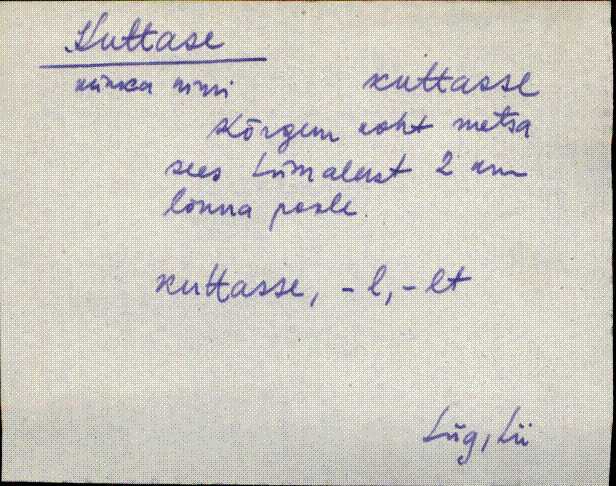 Kuttase
künka nimi kuttasse
Kõrgem koht metsa
sees Liimalast 2 km
lõuna poole.
kuttasse, -l, -lt
Lüg, Lii